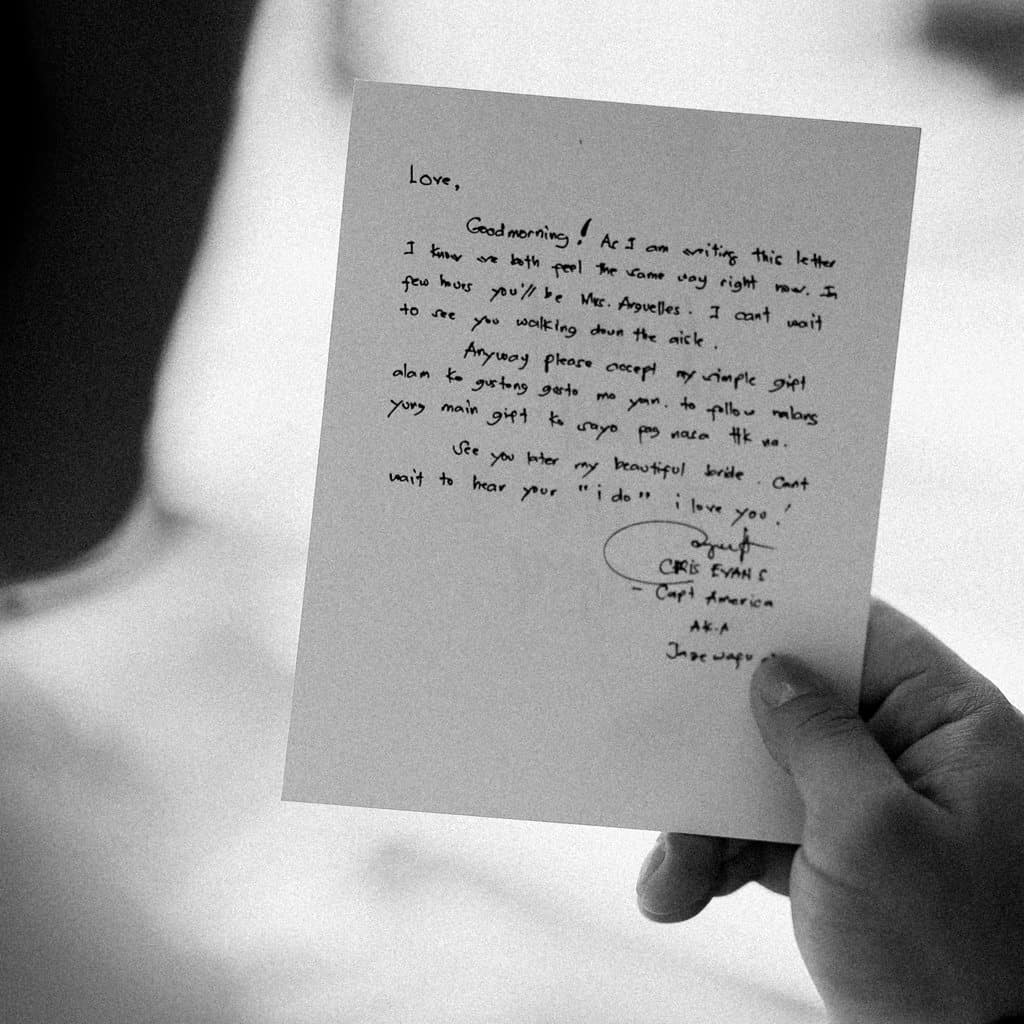 Love,
Goodmorning! As I am writing this letter
I know we both feel the same way right now. In
few hours you'll be Mrs. Arguelles. I cant wait
to see you walking down the aisle.
Anyway please accept my simple gift
alam ko gustong gusto mo yan. to follow nalang
yung main gift ko sayo pag nasa HK na.
See you later my beautiful bride. Cant
wait to hear your "i do" i love you!
CRIS EVANS
- Capt America
A.K.A